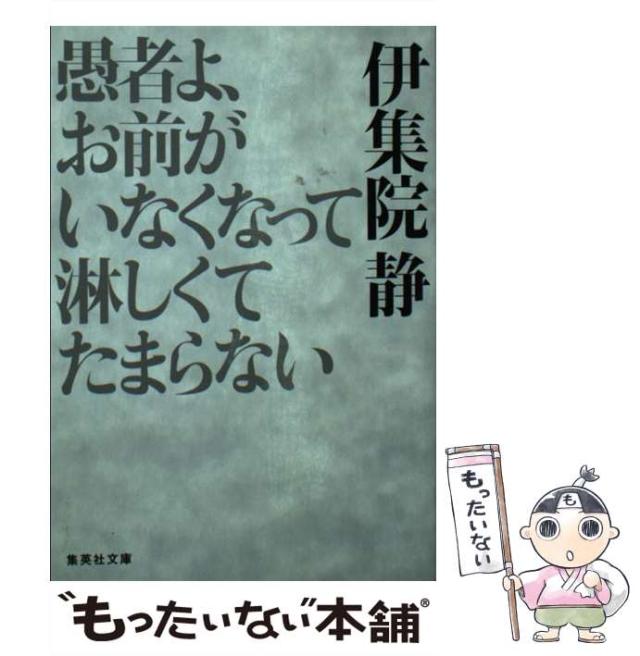 愚者よ、
お前が
いなくなって
淋しくて
たまらない
伊集院 静
集英社文庫
“もったいない”本舗®
もったいない
も